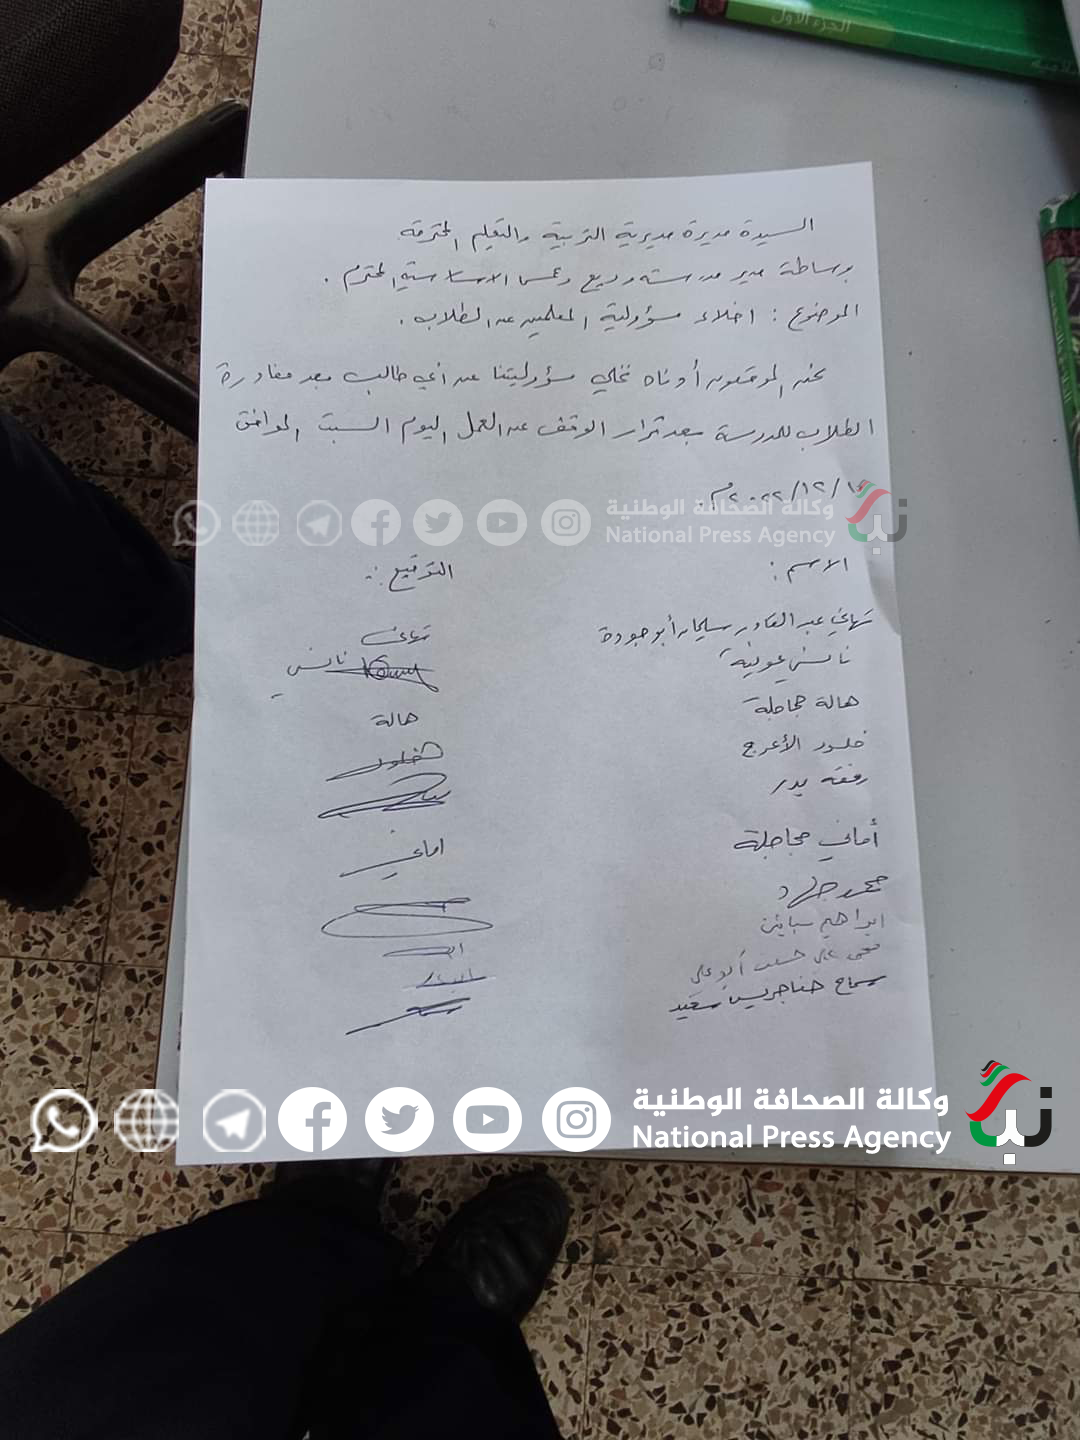 الجزء الأول
السيدة مديرة مديرية التربية والتعليم المحترمة
بوساطة مدير مدرسة وديع دعمس الاساسية المحترم .
الموضوع : اخلاء مسؤولية المعلمين عن الطلاب .
نحن الموقعون أدناه نخلي مسؤوليتنا عن أي طالب بعد مغادرة
الطلاب للمدرسة بعد قرار الوقف عن العمل اليوم السبت الموافق
٢٠٢٢/١٢/ م.
وكالة الصحافة الوطنية
National Press Agency
الاسم : التوقيع :
تهاني عبد القادر سليمان أبو جودة تهاني
نانسي نانسي
هالة حجاجلة هالة
خلود الأعرج خلود
رفقه بدر
أماني حجاجلة اماني
محمد جهاد
ابراهيم سباتين
علي أبو علي
سماح خناجريس سعيد
وكالة الصحافة الوطنية
National Press Agency